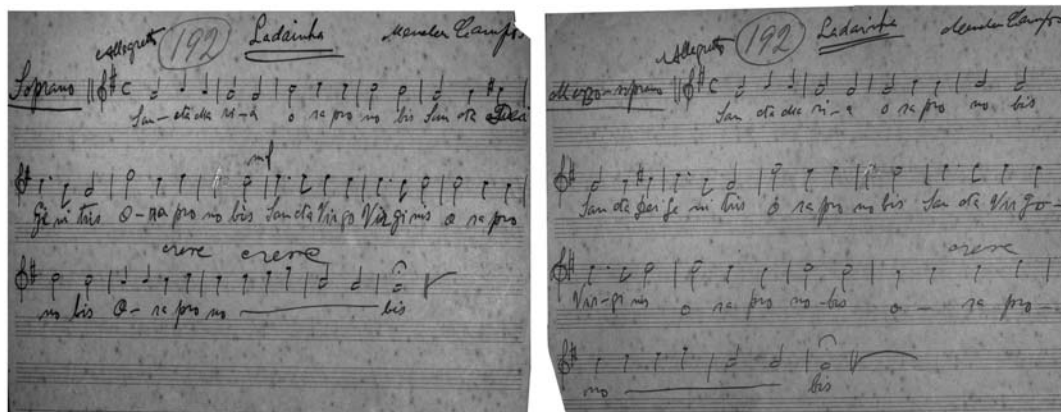 Allegretto 192 Ladainha
Soprano C
San - cta Ma ri - a o ra pro no bis San cta
mf
Ge ni trix O - ra pro no bis San cta Virgo Vir gi nis o ra pro
cresc cresc
no bis O - ra pro no bis
Allegretto 192 Ladainha
Mezzo-soprano C
San cta Ma ri - a o ra pro no bis
San cta Dei Ge ni trix o ra pro no bis San cta Vir go -
cresc
Vir - gi nis o ra pro no - bis o - ra pro -
no bis